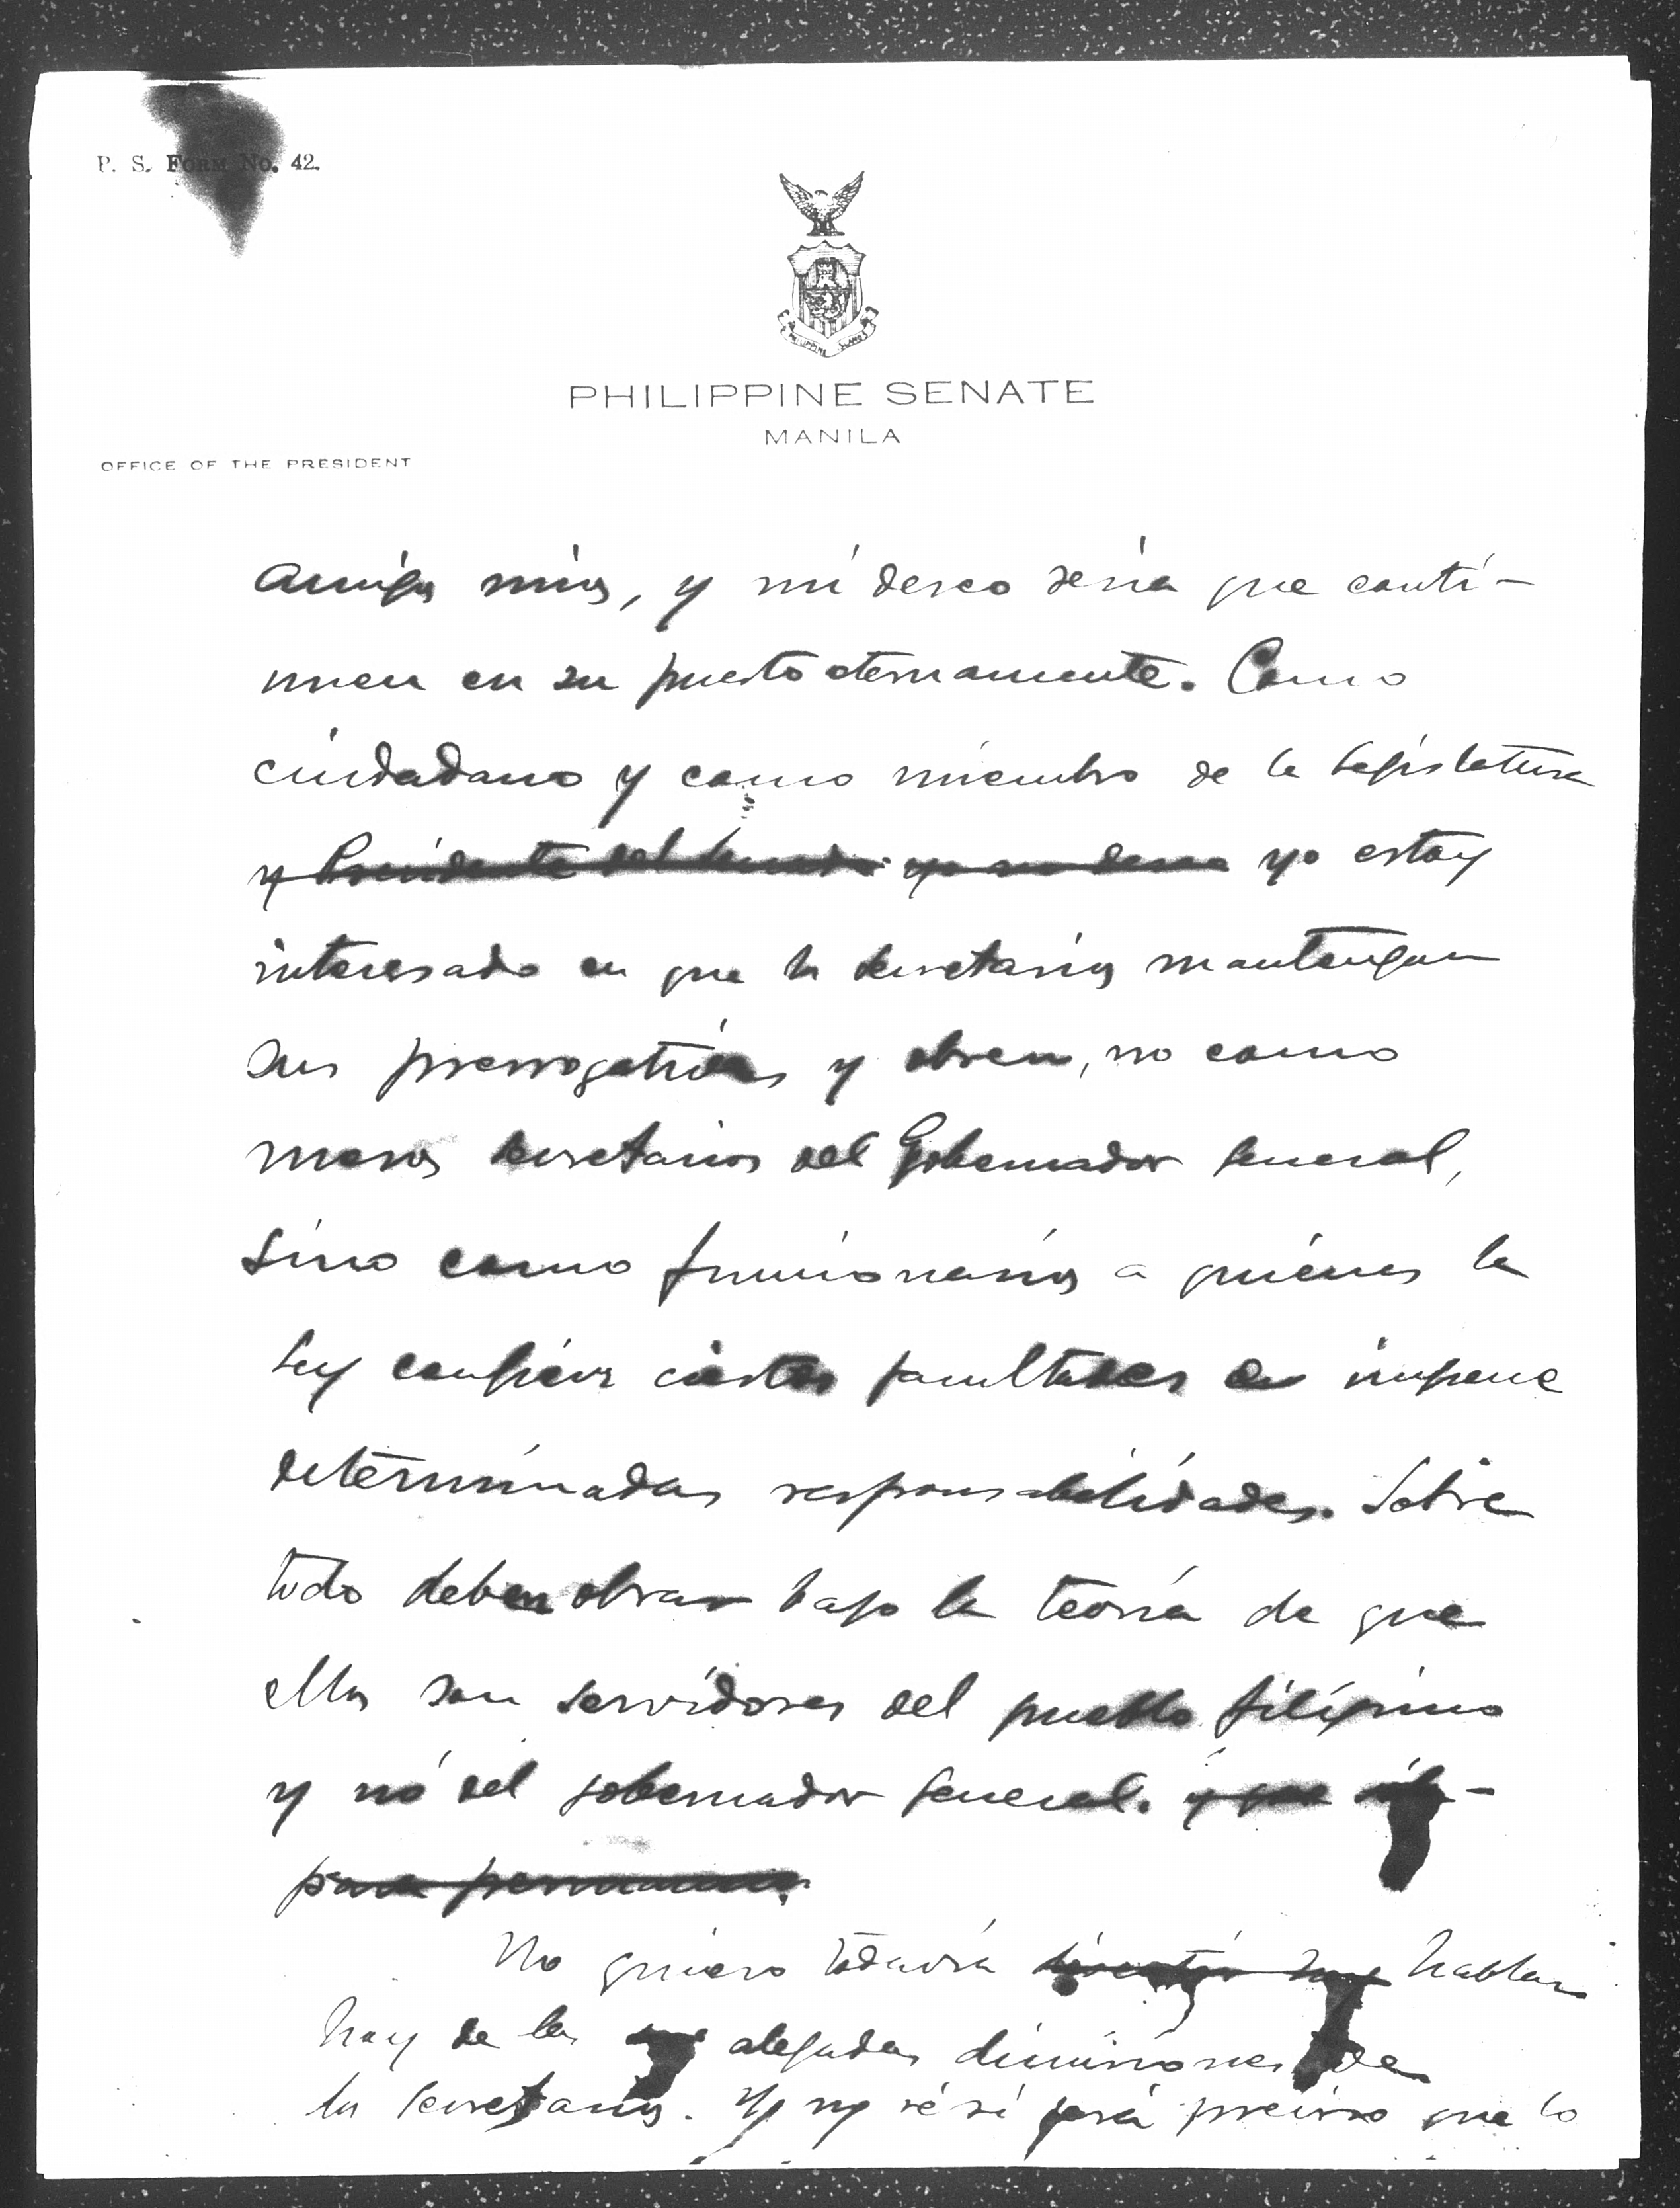 P. S. FORM No. 42.
PHILIPPINE ISLANDS
PHILIPPINE SENATE
MANILA
OFFICE OF THE PRESIDENT
amigos mios, y mi deseo sería que conti-
nuen en su puesto eternamente. Como
ciudadano y como miembro de la Legislatura
y Presidente del Senado yo no deseo yo estoy
interesado en que los Secretarios mantengan
sus prerrogativas y obren, no como
meros Secretarios del Gobernador General,
sino como funcionarios a quienes la
Ley confiere ciertas facultades e impone
determinadas responsabilidades. Sobre
todo deben obrar bajo la teoría de que
ellos son servidores del pueblo filipino
y nó del gobernador general. y que
para permanecer
No quiero todavía hablar
hoy de las alegadas dimisiones de
los Secretarios. Yo no sé si será preciso que lo